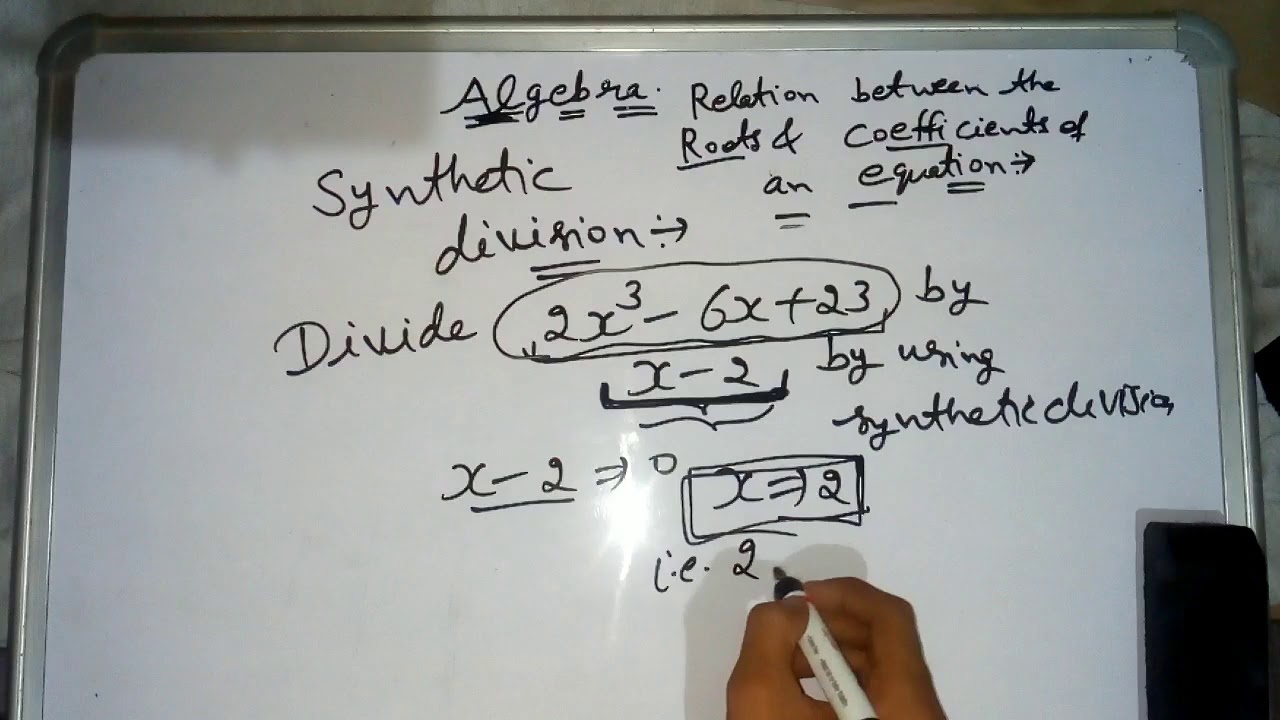 Algebra. Relation between the
Roots & coefficients of
an equation :→
Synthetic
division :→
Divide (2x³ - 6x + 23) by
x - 2 by using
synthetic division
x - 2 ⇒ 0 x ⇒ 2
i.e. 2